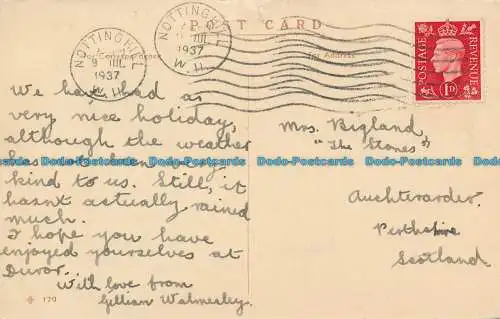 POST CARD
NOTTING HILL
JUL
1937
W.11.
NOTTING HILL
9 JUL
1937
W.11.
For Address
POSTAGE
REVENUE
1D
We have had a
very nice holiday,
although the weather
has not been very
kind to us. Still, it
hasnt actually rained
much.
I hope you have
enjoyed yourselves at
Duror.
With love from
Gillian Walmesley.
Mrs. Bigland,
"The Stones"
Auchterarder.
Perthshire
Scotland
170
Dodo-Postcards Dodo-Postcards Dodo-Postcards Dodo-Postcards